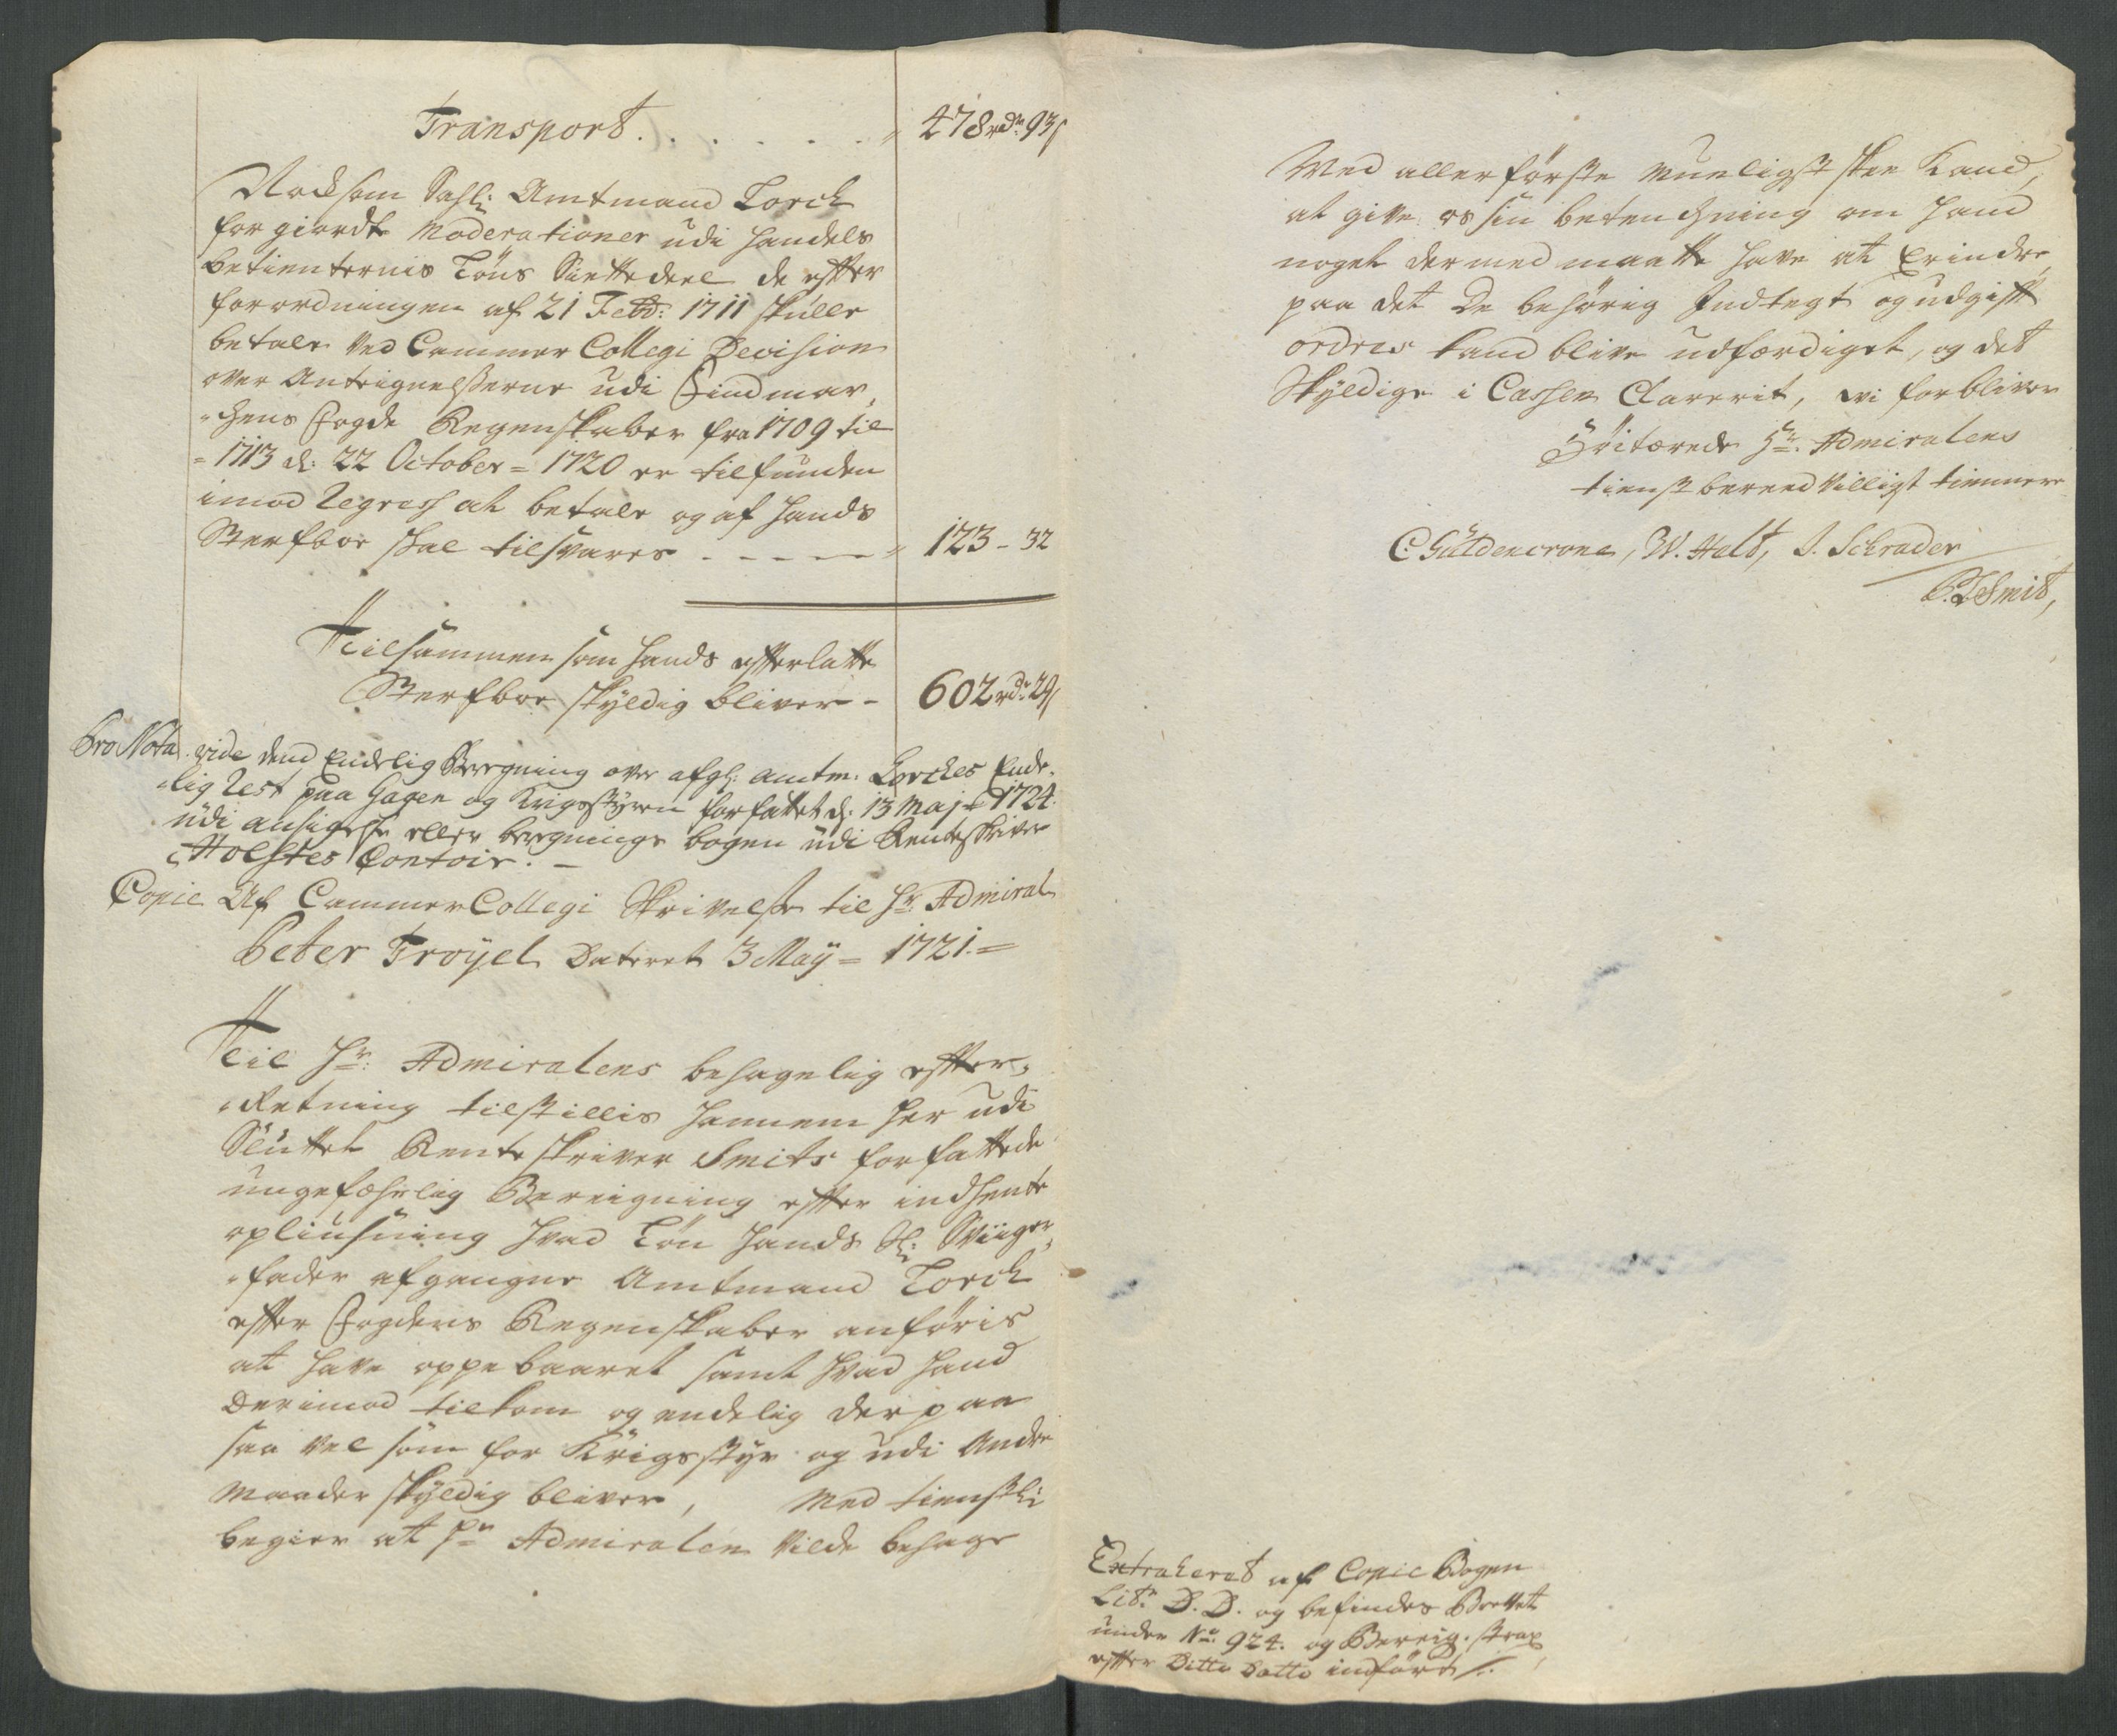 Transport. . . . . . . " 478 rdr 93 s
Nock som Sahl: Amtmand Lorck
for giordte Moderationer udi Handels
betienternis Löns Siettedeel de effter
forordningen af 21 Febr: 1711 skulle
betale ved Cammer Collegi Decision
over Antegnelsserne udi Findmar,
"chens Fogde Regenskaber fra 1709 til
= 1713 d: 22 October = 1720 er tilfunden
imod Regress at betale og af hands
Sterfboe skal tilsvares - - - - - " 123 - 32
Tilsammen som hands effterlatte
Sterfboe skyldig bliver - 602 rdr 29 s
Pro Nota. vide dend Endelig Beregning over afgl: amtm: Lorckes Ende,
"lig Rest paa Gagen og Krigsstyren forfattet d: 13 Maj 1724.
udi ansigelse eller beregnings bogen udi Renteskriver
Holstes Contoir. -
Copie Af Cammer Collegi Skrivelse til Hr Admiral
Peter Trojel Dateret 3 Maÿ = 1721. =
Til Hr: Admiralens behagelig effter,
"Retning tilstillis hannem her udi
Sluttet Renteskriver Smits forfattede
ungefæhrlig Bereigning effter indhente
opliusning hvad Lön hands Sl: Sviiger,
"fader afgangne Amtmand Lorck
effter Fogdens Regenskaber anföris
at have oppebaaret samt hvad hand
derimod tilkom og endelig derpaa
saa vel som for Krigsstyr og udi Andre
maader skyldig bliver, Med tienstl:
begier at Hr Admiralen vilde behage
Med allerförste mueligst skee kand,
at give os sin betenchning om hand
noget dermed maatte have at Erindre,
paa det de behörig Indtegt og udgifft
ordres kand blive udfærdiget, og det
Skyldige i Cassen Clarerit, vi forbliver
Höitærede Hr. Admiralens
tienstbereedvilligst tiennere
C: Güldencrone, W. Halt, J. Schrader
P: T Smit,
Extraherit af Copie Bogen
Litr: D. D. og befindes Brevet
under No: 924. og Bereig. strax
effter Ditto Datto indfört /.